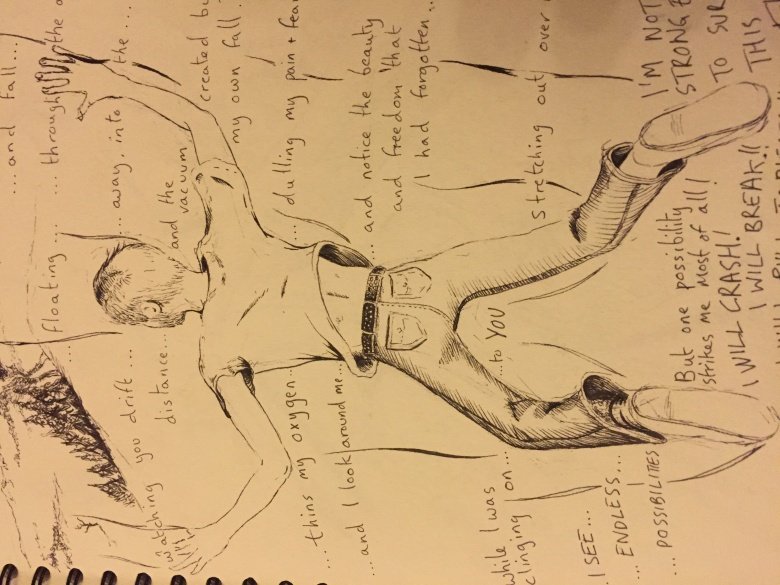 ...and fall...
floating ...
... through the
watching you drift ...
... away, into the ....
distance...
and the
vacuum
created
my own fall ...
... thins my oxygen...
... dulling my pain + fear
...and I look around me...
... and notice the beauty
and freedom that
I had forgotten ...
while I was
clinging on...
...to YOU
stretching out over
I SEE...
... ENDLESS...
... POSSIBILITIES
But one possibility
strikes me most of all!
I WILL CRASH!
I WILL BREAK!!
I'M NOT
STRONG
TO
THIS